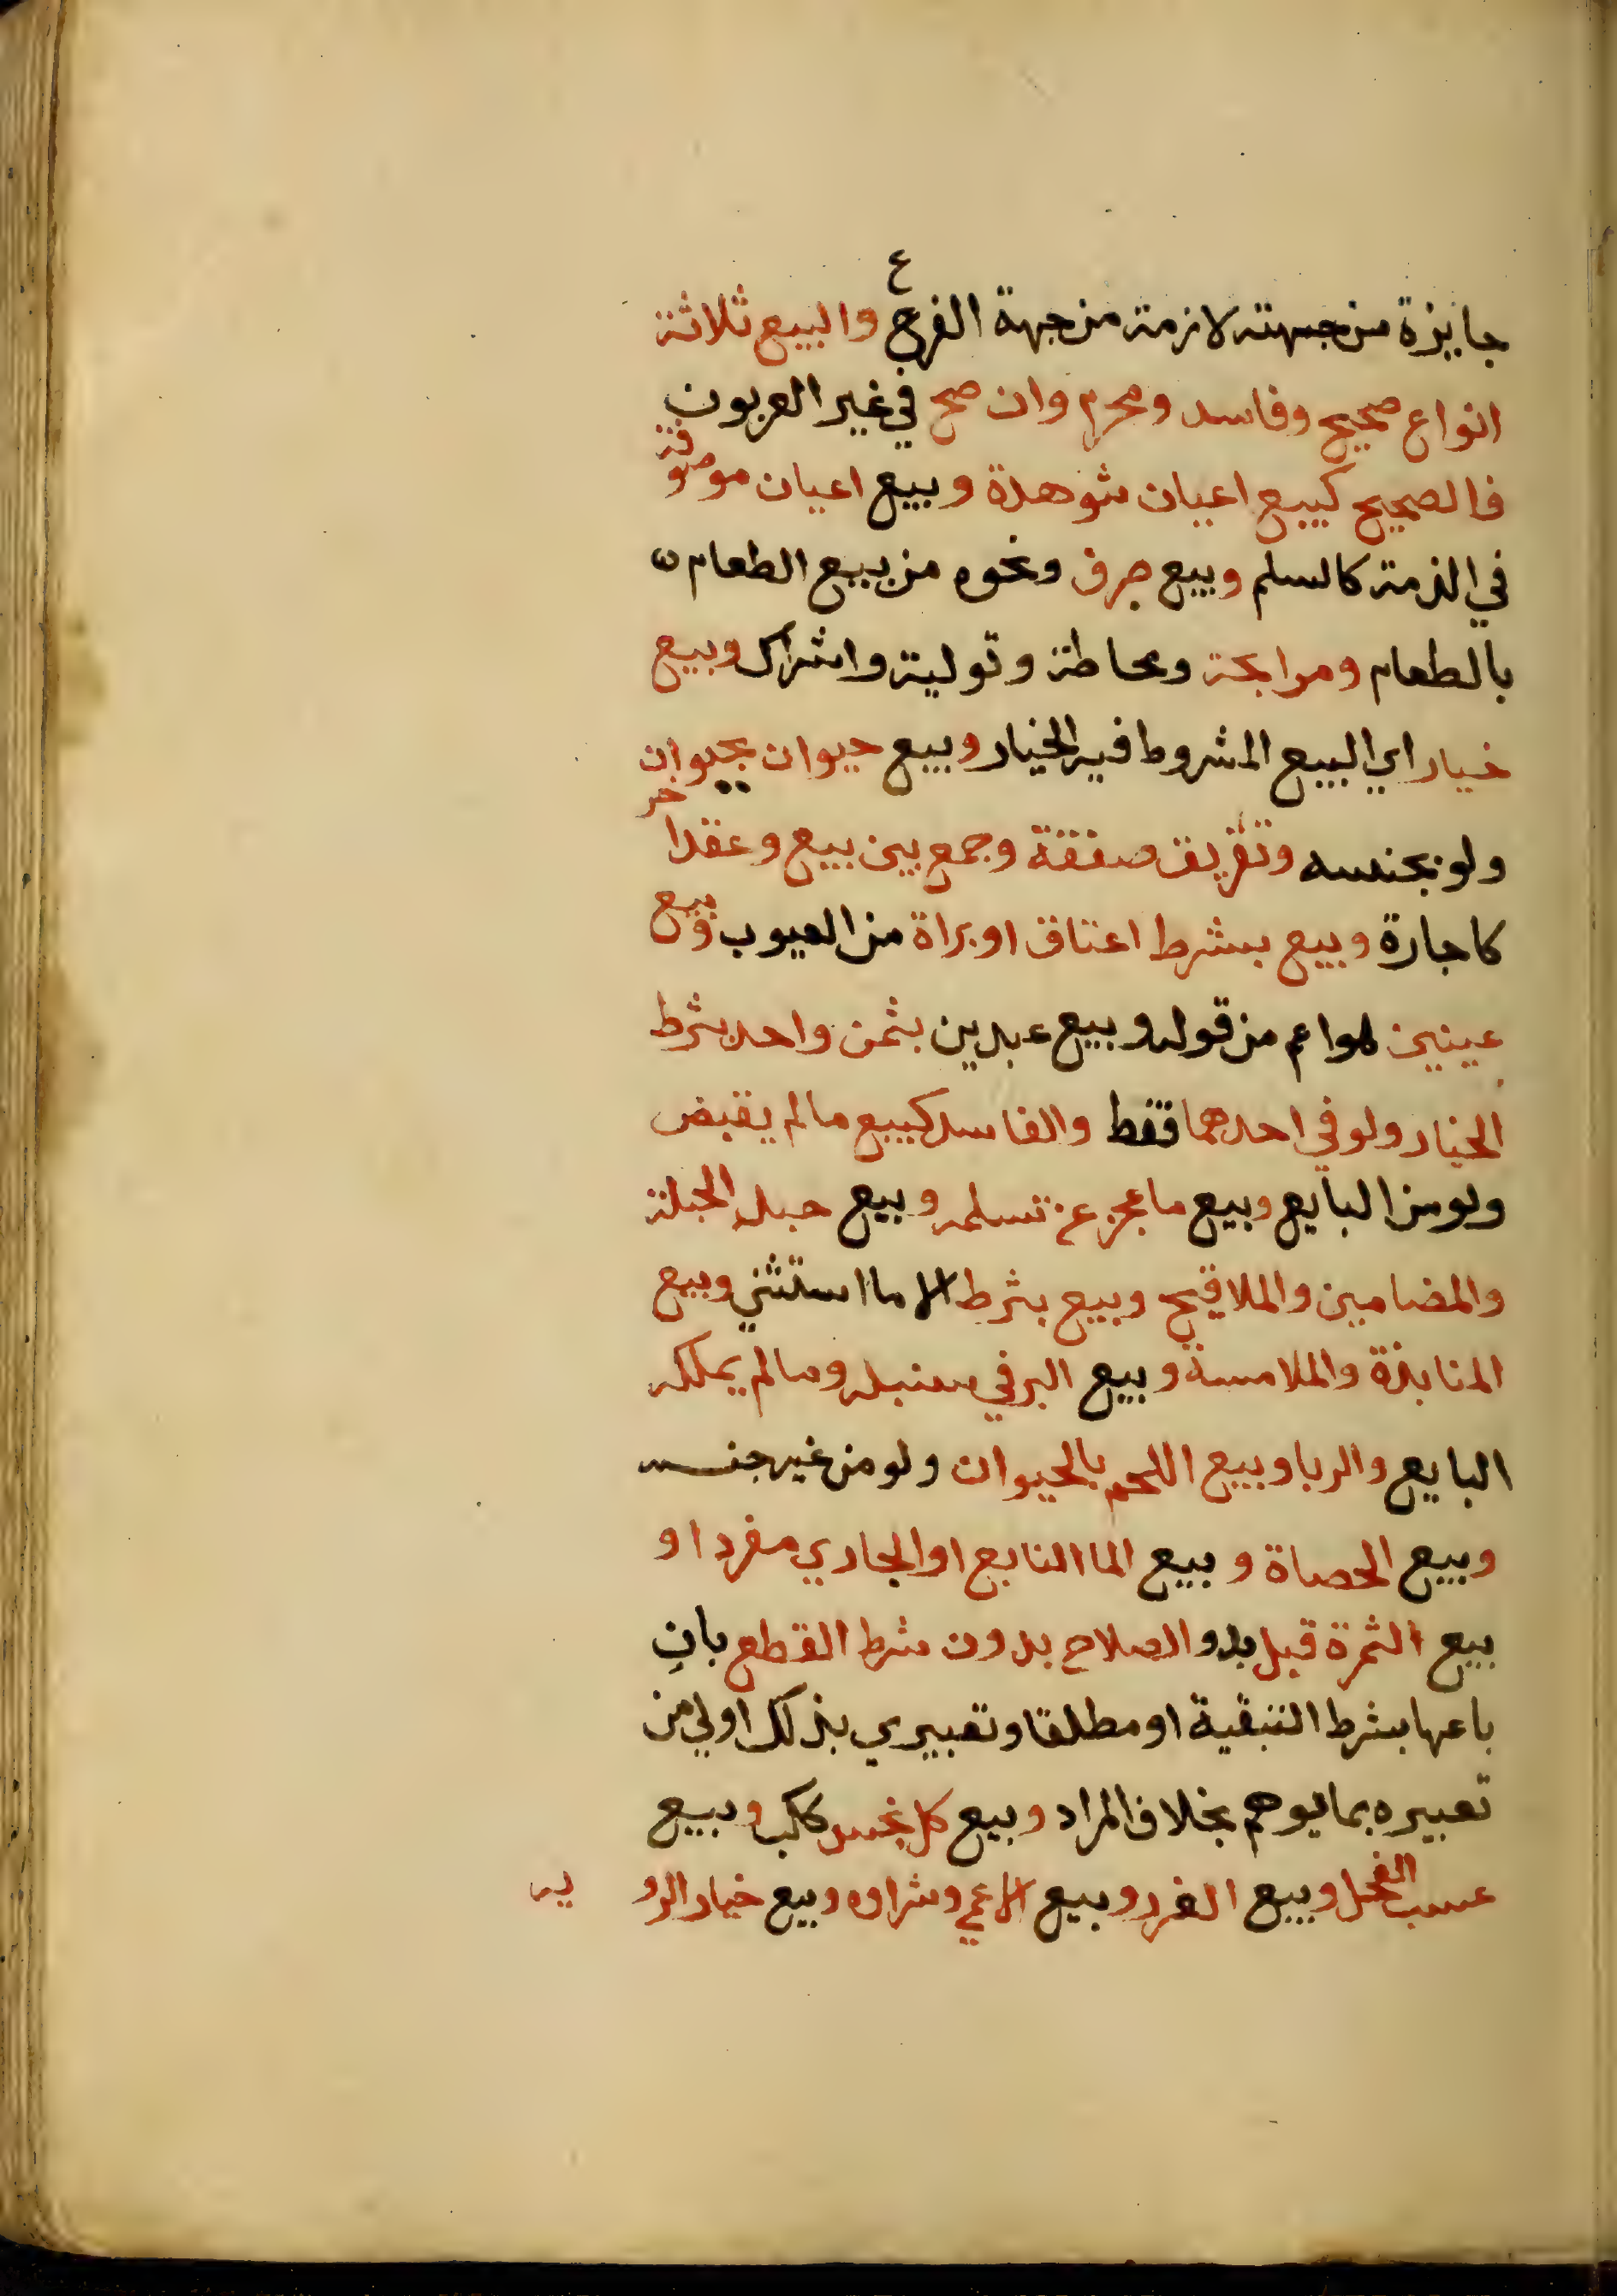 جايزة من جهته لازمة من جهة الفرع والبيع ثلاثة
انواع صحيح وفاسد ومحرم وان صح في غير العربون
فالصحيح كبيع اعيان شوهدة وبيع اعيان موصوفة
في الذمة كالسلم وبيع صرف ونحوه من بيع الطعام
بالطعام ومرابحة ومحاطة وتولية واشراك وبيع
خيار اي البيع المشروط فيه الخيار وبيع حيوان بحيوان
ولو بجنسه وتفريق صفقة وجمع بين بيع وعقد اخر
كاجارة وبيع بشرط اعتاق او براة من العيوب وبيع
عينين هو اعم من قوله وبيع عبدين بثمن واحد بشرط
الخيار ولو في احدهما فقط والفاسد كبيع ما لم يقبض
ولو من البايع وبيع ما عجز عن تسلمه وبيع حبل الحبلة
والمضامين والملاقيح وبيع بشرط الا ما استثني وبيع
المنابذة والملامسة وبيع البر في سنبله وما لم يملكه
البايع والربا وبيع اللحم بالحيوان ولو من غير جنسه
وبيع الحصاة وبيع الما النابع او الجاري مفردا و
بيع الثمرة قبل بدو الصلاح بدون شرط القطع بان
باعها بشرط التبقية او مطلقا وتعبيري بذلك اولي من
تعبيره بما يوهم بخلاف المراد وبيع كل نجس ككلب وبيع
عسب الفحل وبيع الغرر وبيع الاعمي وشراوه وبيع خيار الرو
يه